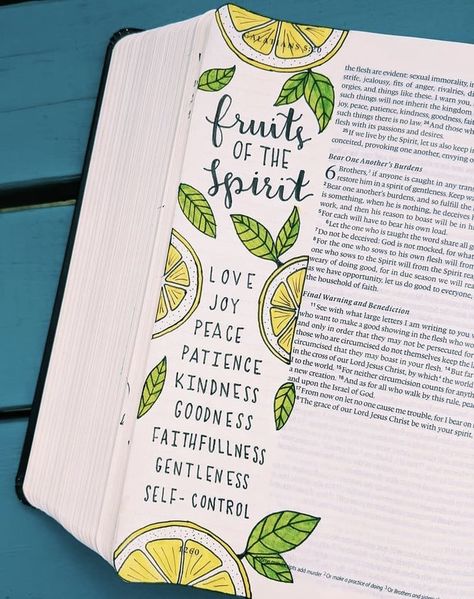 GALATIANS 5:20
fruits
OF THE
Spirit
LOVE
JOY
PEACE
PATIENCE
KINDNESS
GOODNESS
FAITHFULLNESS
GENTLENESS
SELF-CONTROL
1260
the flesh are evident: sexual immorality, i
strife, jealousy, fits of anger, rivalries, di
orgies, and things like these. I warn you,
such things will not inherit the kingdom
joy, peace, patience, kindness, goodness, fait
such things there is no law. 24 And those wh
flesh with its passions and desires.
25 If we live by the Spirit, let us also keep i
conceited, provoking one another, envying
Bear One Another's Burdens
6 Brothers, if anyone is caught in any tran
restore him in a spirit of gentleness. Keep wa
2 Bear one another's burdens, and so fulfill the
is something, when he is nothing, he deceives hi
work, and then his reason to boast will be in hi
5 For each will have to bear his own load.
6 Let the one who is taught the word share all g
7 Do not be deceived: God is not mocked, for what
8 For the one who sows to his own flesh will from
one who sows to the Spirit will from the Spirit rea
weary of doing good, for in due season we will rea
as we have opportunity, let us do good to everyone
the household of faith.
Final Warning and Benediction
11 See with what large letters I am writing to you
who want to make a good showing in the flesh who wo
and only in order that they may not be persecuted for
those who are circumcised do not themselves keep the la
circumcised that they may boast in your flesh. 14 But far
in the cross of our Lord Jesus Christ, by which the world
to the world. 15 For neither circumcision counts for anyth
a new creation. 16 And as for all who walk by this rule, pea
and upon the Israel of God.
17 From now on let no one cause me trouble, for I bear on
18 The grace of our Lord Jesus Christ be with your spirit.
add murder 2 Or make a practice of doing 3 Or Brothers and sisters